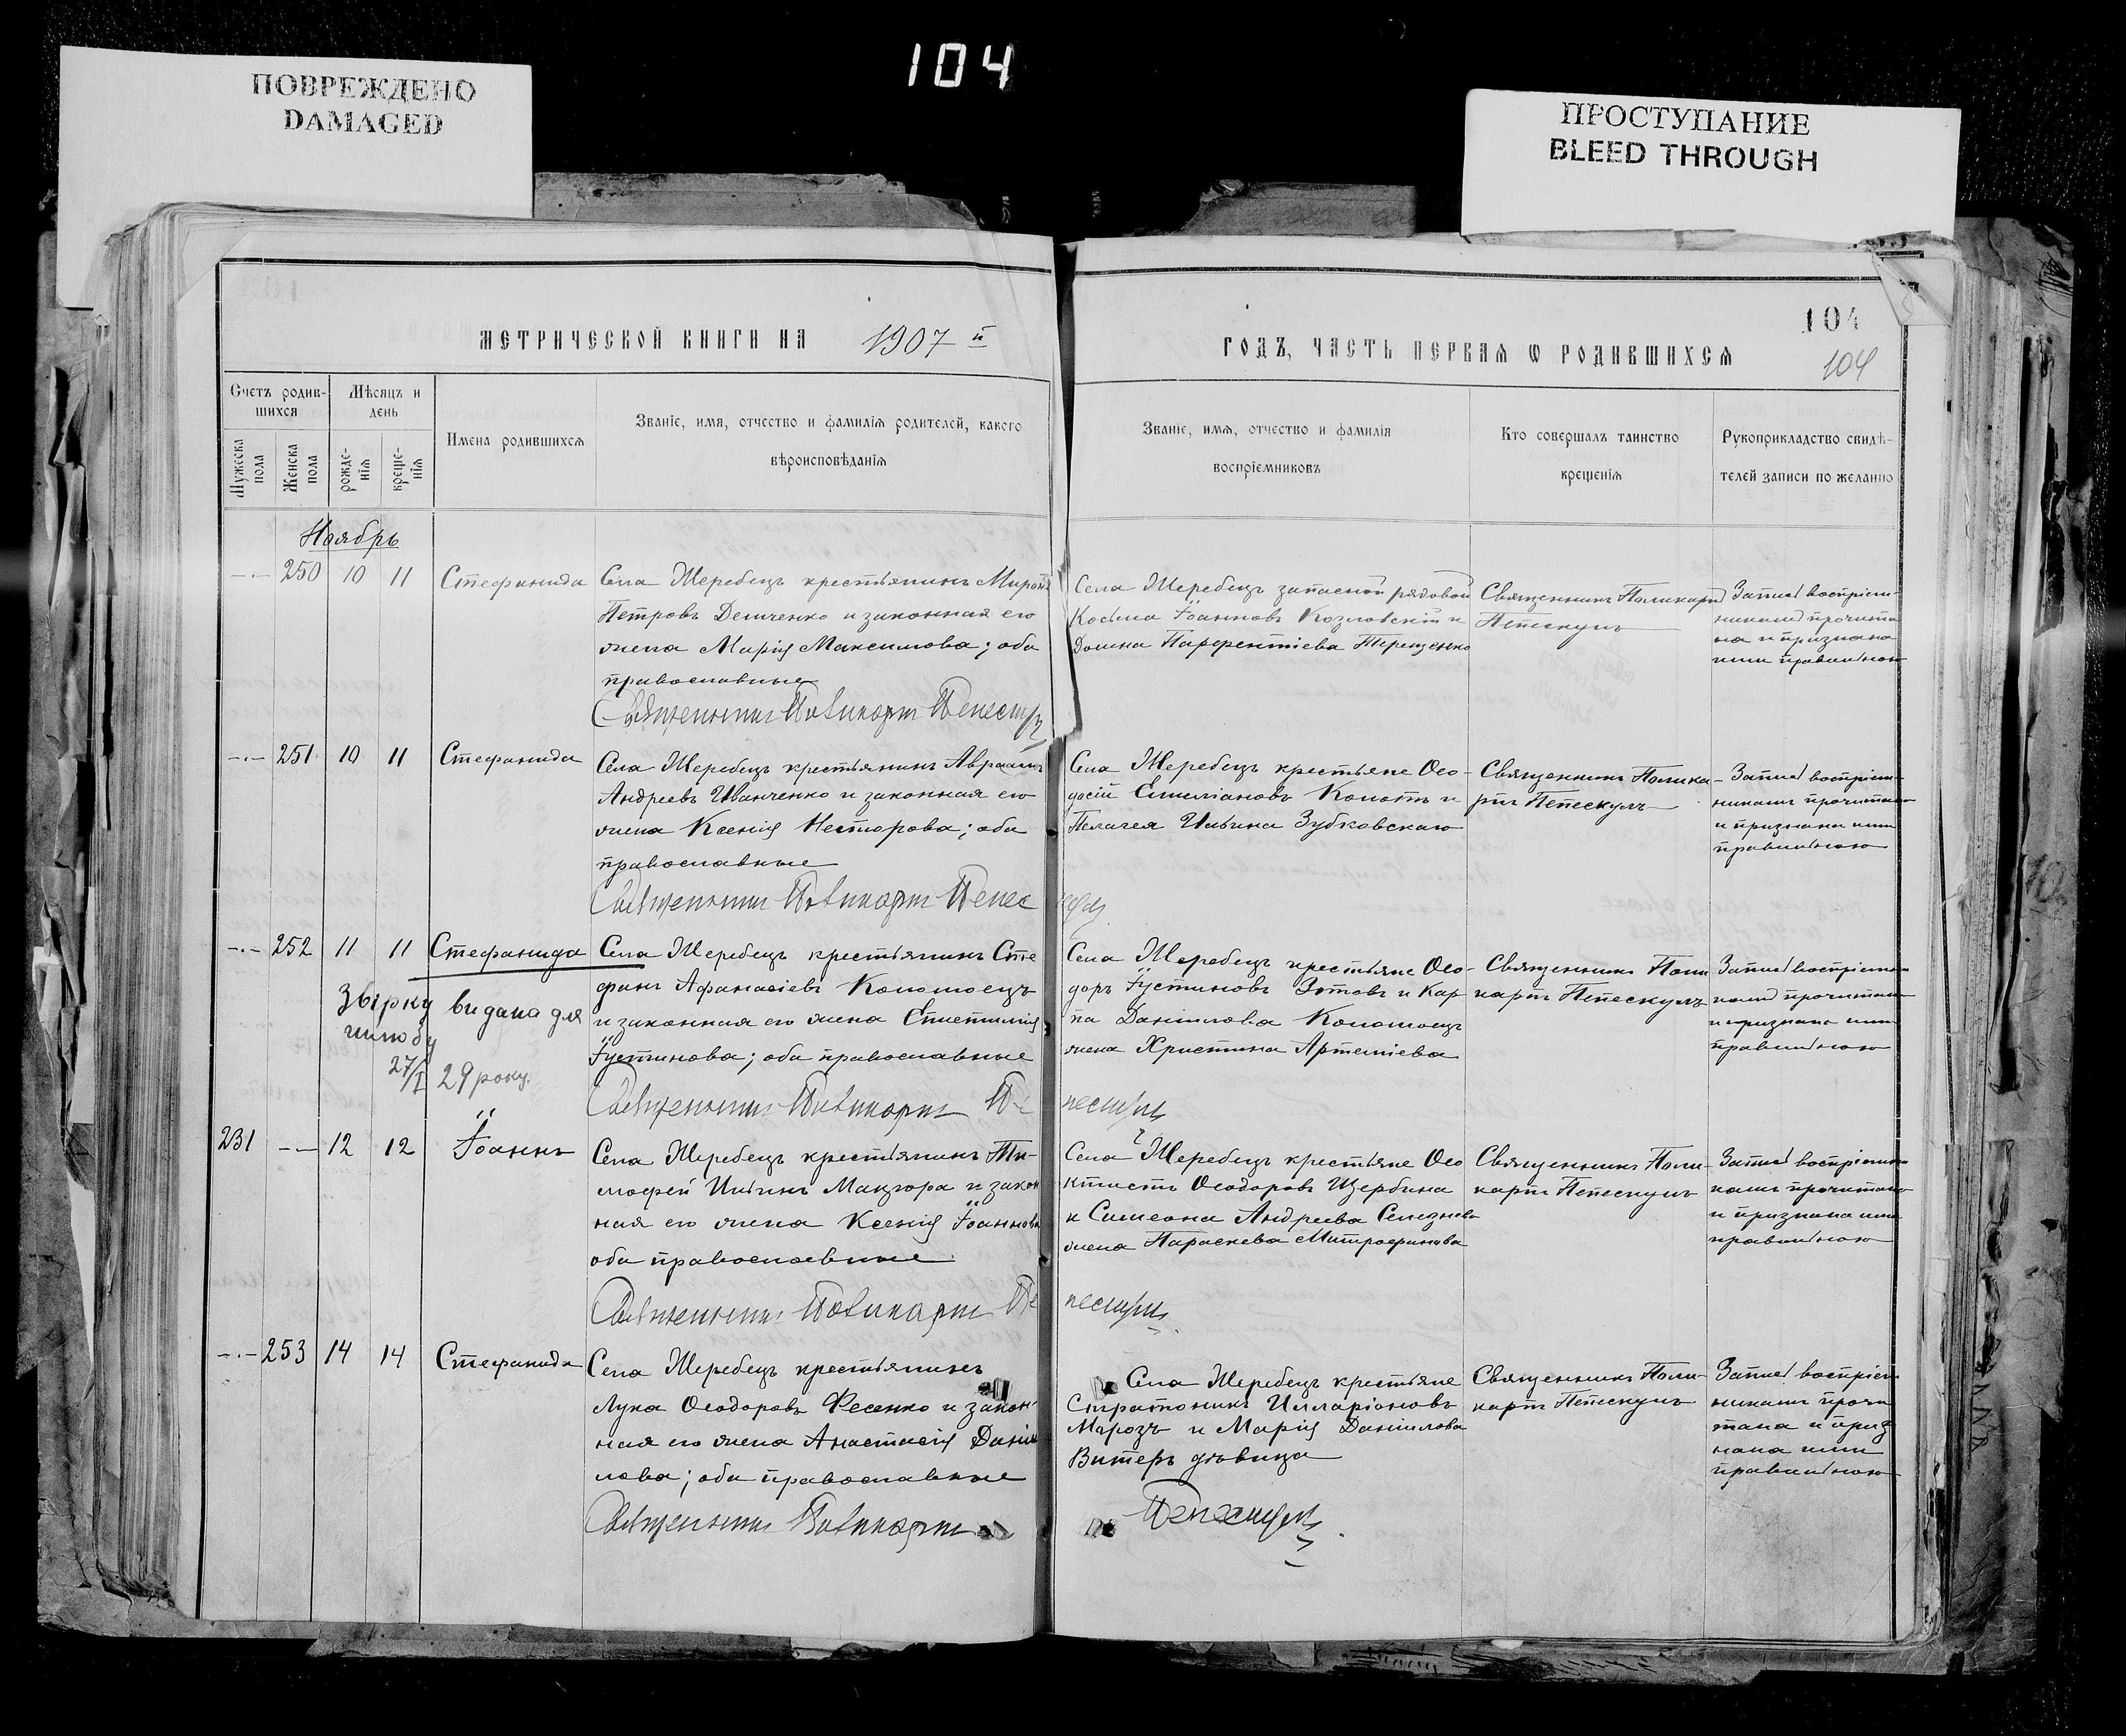 104
ПОВРЕЖДЕНО
DAMAGED
ПРОСТУПАНИЕ
BLEED THROUGH
МЕТРИЧЕСКОЙ КНИГИ НА 1907 й
ГОДЪ, ЧАСТЬ ПЕРВАЯ Ѡ РОДИВШИХСЯ
104
104
Счетъ родив-
шихся
Мужеска пола
Женска пола
Мѣсяцъ и
день
рожде-
нія
креще-
нія
Имена родившихся
Званіе, имя, отчество и фамилія родителей, какого
вѣроисповѣданія
Званіе, имя, отчество и фамилія
воспріемниковъ
Кто совершалъ таинство
крещенія
Рукоприкладство свидѣ-
телей записи по желанію
Ноябрь
250 10 11 Стефанида
Села Жеребецъ крестьянинъ Миронъ
Петровъ Демченко и законная его
жена Марія Максимова; оба
православные
Священникъ Поликарпъ
Села Жеребецъ запасной рядовой
Косьма Іоанновъ Козловскій и
Домна Парфентіева Терещенко
Священникъ Поликарпъ
Пепескулъ
Запись воспріем-
никами прочита-
на и признана
ими правильною
251 10 11 Стефанида
Села Жеребецъ крестьянинъ Авраамъ
Андреевъ Иванченко и законная его
жена Ксенія Несторова; оба
православные
Священникъ Поликарпъ Пепескулъ
Села Жеребецъ крестьяне Ѳео-
досій Емеліановъ Копотъ и
Пелагея Ильина Зубковскаго
Священникъ Полика-
рпъ Пепескулъ
Запись воспріем-
никами прочитана
и признана ими
правильною
252 11 11 Стефанида
Села Жеребецъ крестьянинъ Сте
фанъ Афанасіевъ Коломоецъ
и законная его жена
Іустинова; оба православные
Священникъ Поликарпъ Пепескулъ
Села Жеребецъ крестьяне Ѳео-
доръ Іустиновъ Зотовъ и Кар
па Даніилова Коломоецъ
жена Христина Артеміева
Священникъ Поли
карпъ Пепескулъ
Запись воспріемни
ками прочитана
и признана ими
правильною
видана для
шлюбу
27/I 29 року.
231 12 12 Іоаннъ
Села Жеребецъ крестьянинъ Ти-
мофей Ильинъ Мацгора и закон
ная его жена Ксенія Іоаннова
оба православные
Священникъ Поликарпъ Пепескулъ
Села Жеребецъ крестьяне Ѳео
ктистъ Ѳеодоровъ Щербина
и Симеона Андреева Селезнева
жена Параскева Митрофанова
Священникъ Поли-
карпъ Пепескулъ
Запись воспріемни
ками прочитана
и признана ими
правильною
253 14 14 Стефанида
Села Жеребецъ крестьянинъ
Лука Ѳеодоровъ Фесенко и закон-
ная его жена Анастасія Даніи
лова; оба православные
Священникъ Поликарпъ
Села Жеребецъ крестьяне
Стратоникъ Илларіоновъ
Морозъ и Марія Даніилова
Витеръ дѣвица
Пепескулъ
Священникъ Поли-
карпъ Пепескулъ
Запись воспріем
никами прочи
тана и приз
нана ими
правильною